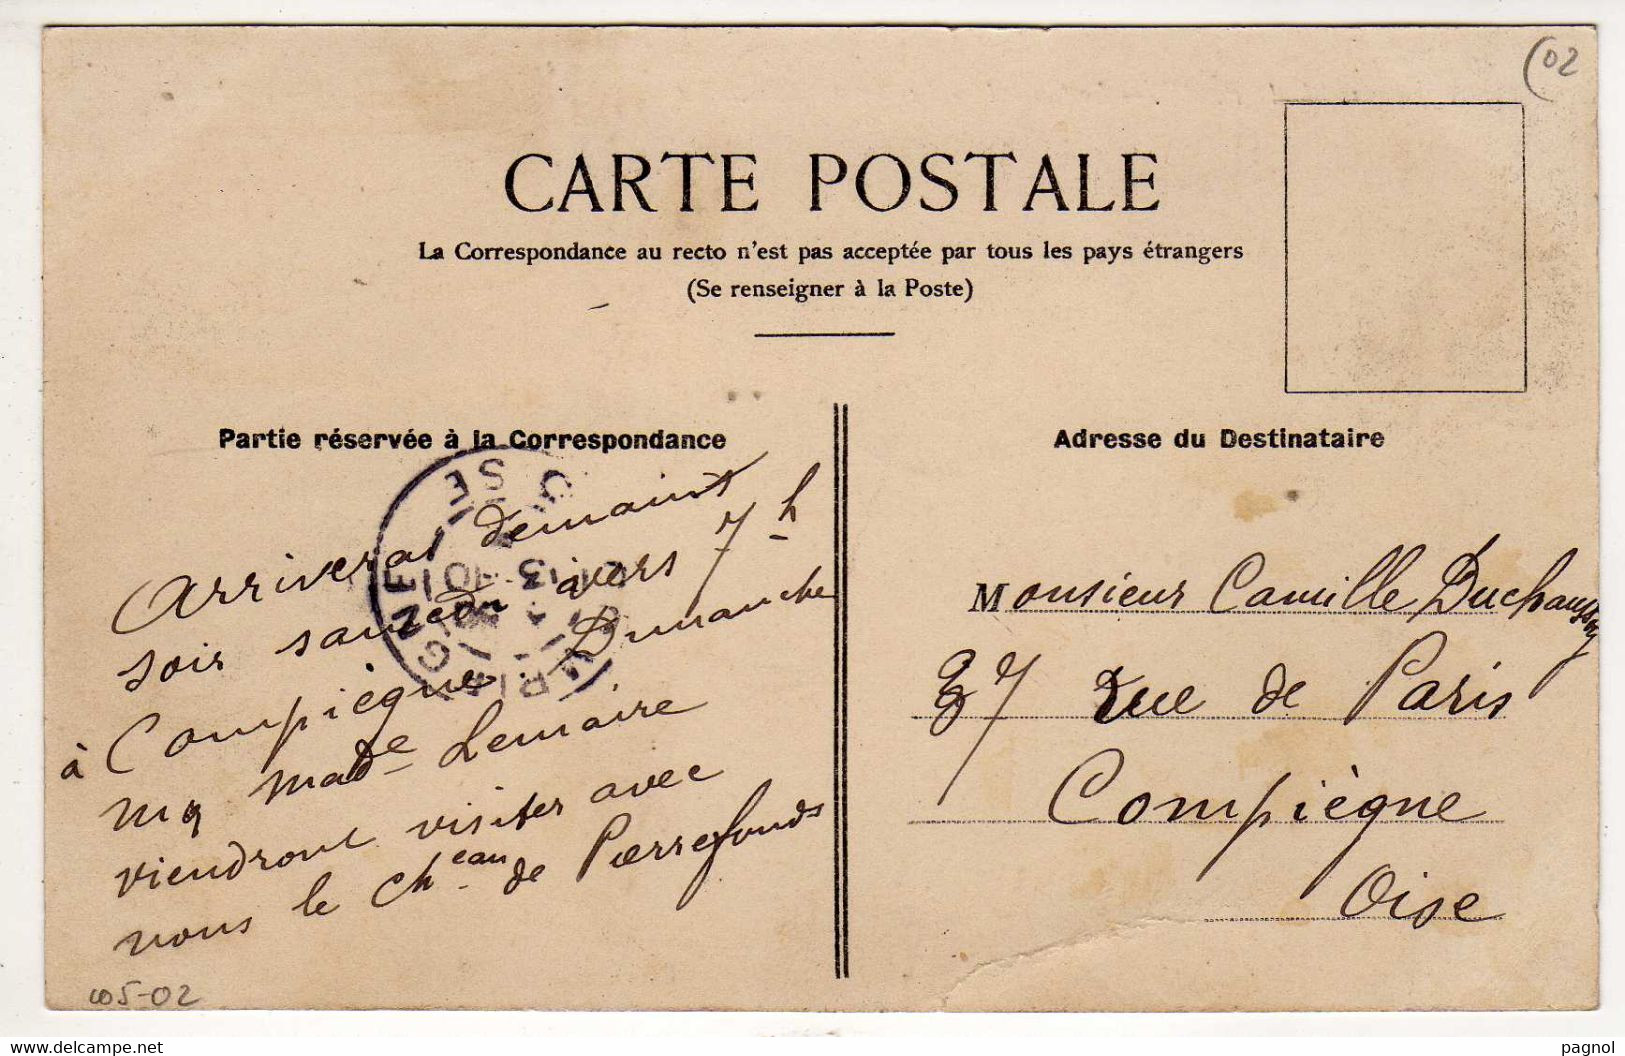 (02
CARTE POSTALE
La Correspondance au recto n'est pas acceptée par tous les pays étrangers
(Se renseigner à la Poste)
Partie réservée à la Correspondance
Arriverai demain
soir samedi vers 7h
à Compiègne Dimanche
Made Lemaire
viendront visiter avec
nous le Cheau de Pierrefonds
Adresse du Destinataire
Monsieur Camille
37 rue de Paris
Compiègne
Oise
OISE
COMPIEGNE
005-02
www.delcampe.net
pagnol